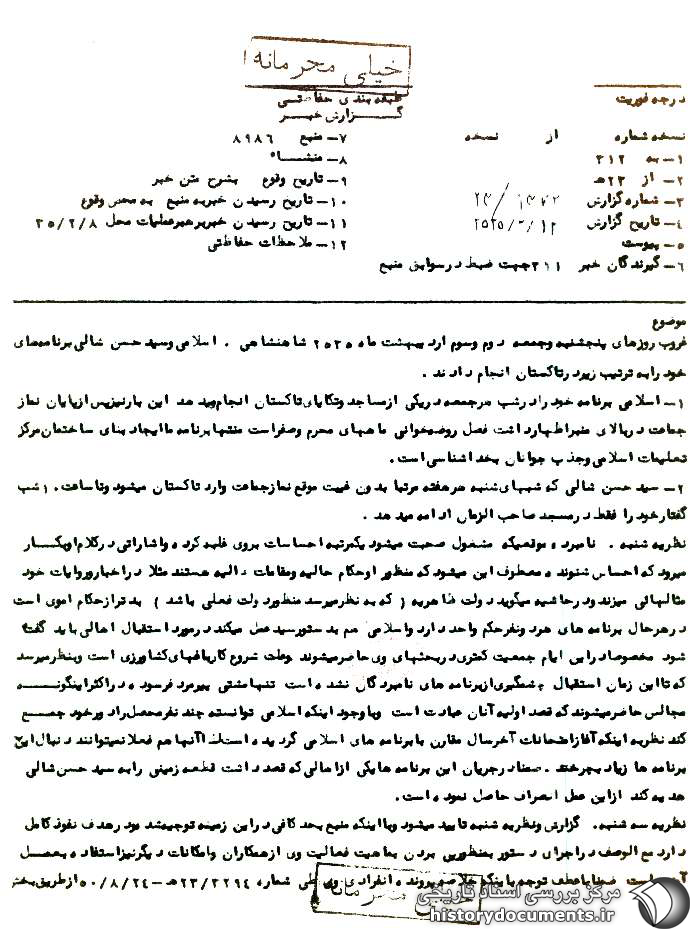 خیلی محرمانه
درجه فوریت
طبقه بندی حفاظتی
گزارش خبر
نسخه شماره از نسخه
۷- منبع ۸۹۸۶
۱- به ۳۱۲
۸- منشاء
۲- از ۲۳ه
۹- تاریخ وقوع بشرح متن خبر
۳- شماره گزارش
۱۰- تاریخ رسیدن خبر به منبع به محض وقوع
۴- تاریخ گزارش
۱۱- تاریخ رسیدن خبر برهبر عملیات محل ۳۵/۲/۸
۵- پیوست
۱۲- ملاحظات حفاظتی
۶- گیرندگان خبر ۳۱۱ جهت ضبط در سوابق منبع
موضوع
غروب روزهای پنجشنبه وجمعه دوم وسوم اردیبهشت ماه ۲۵۳۵ شاهنشاهی . اسلامی وسید حسن شالی برنامه‌های
خود را به ترتیب زیر در تاکستان انجام دادند .
۱- اسلامی برنامه خود را در شب هر جمعه در یکی از مساجد وتکایای تاکستان انجام میدهد این بار نیز پس از پایان نماز
جماعت در بالای منبر اظهار داشت فصل روضه‌خوانی ماههای محرم وصفر است منتها برنامه ما ایجاد بنای ساختمان مرکز
تعلیمات اسلامی وجذب جوانان بخدا شناسی است .
۲- سید حسن شالی که شبهای شنبه هر هفته مرتبا بدون غیبت موقع نماز جماعت وارد تاکستان میشود وتا ساعت ۱۰ شب
گفتار خود را فقط در مسجد صاحب الزمان ادامه میدهد .
نظریه شنبه . نامبرده موقعیکه مشغول صحبت میشود یکمرتبه احساسات بروی غلبه کرده واشاراتی در کلام او بکار
میرود که احساس شنونده معطوف این میشود که منظور او حکام حالیه ومقامات دالیه هستند مثلا در اخبار وروایات خود
مثالهائی میزند ودر حاشیه میگوید دولت ظاهریه ( که به نظر میرسد منظور دولت فعلی باشد ) بدتر از حکام اموی است
در هر حال برنامه های هر دو نفر حکم واحد دارد واسلامی هم بدستور سید عمل میکند در مورد استقبال اهالی باید گفته
شود مخصوصا در این ایام جمعیت کمتری در بحثهای وی حاضر میشوند بعلت شروع کار باغهای کشاورزی است وبنظر میرسد
که تا این زمان استقبال چشمگیری از برنامه های نامبردگان نشده است تنها مشتی پیرمرد فرسوده در اکثر اینگونه
مجالس حاضر میشوند که قصد اولیه آنان عبادت است وبا وجود اینکه اسلامی توانسته چند نفر محصل را دور خود جمع
کند نظر به اینکه آغاز امتحانات آخر سال مقارن با برنامه های اسلامی گردیده است لذا آنها هم فعلا نمیتوانند دنبال این
برنامه ها زیاد بچرخند . ضمنا در جریان این برنامه ها یکی از اهالی که قصد داشت قطعه زمینی را به سید حسن شالی
هدیه کند از این عمل انصراف حاصل نموده است .
نظریه سه شنبه . گزارش ونظریه شنبه تایید میشود وبا اینکه منبع بحد کافی در این زمینه توجیه شد بود رهدف نفوذ کامل
دارد مع الوصف در اجرای دستور بمنظور پی بردن بماهیت فعالیت وی از همکاران وامکانات دیگر نیز استفاده بعمل
ضمنا با عطف توجه باینکه خلاصه پرونده انفرادی وی طی شماره ۲۳/۳۲۹۴ه-۵۰/۸/۲۴ از طریق بخش
خیلی محرمانه
مرکز بررسی اسناد تاریخی
historydocuments.ir